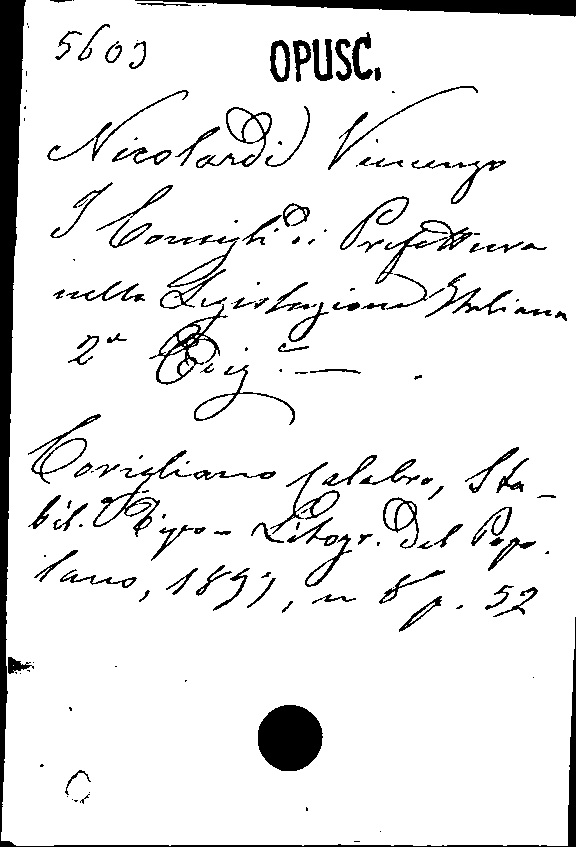 5603 OPUSC.
Nicolardi Vincenzo
I Consigli di Prefettura
nella Legislazione Italiana
2ª Ediz.e —
Corigliano Calabro, Sta-
bil. Tipo-Litogr. del Popo-
lano, 1899, in 8° p. 52